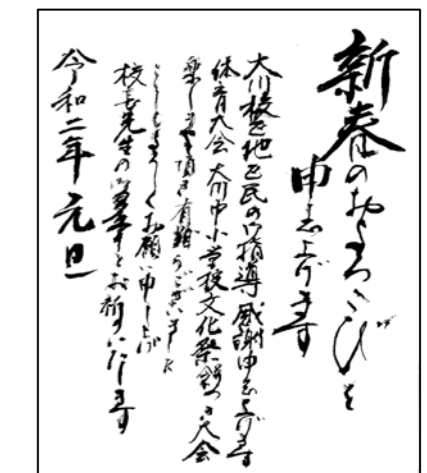 新春のおよろこびを
申し上げます
大川校区地区民の御指導感謝申し上げます
体育大会 大川中小学校文化祭餅つき大会
楽しませて頂き有難うございました
ことしもよろしくお願い申し上げ
校長先生の御多幸をお祈りいたします
令和二年元旦